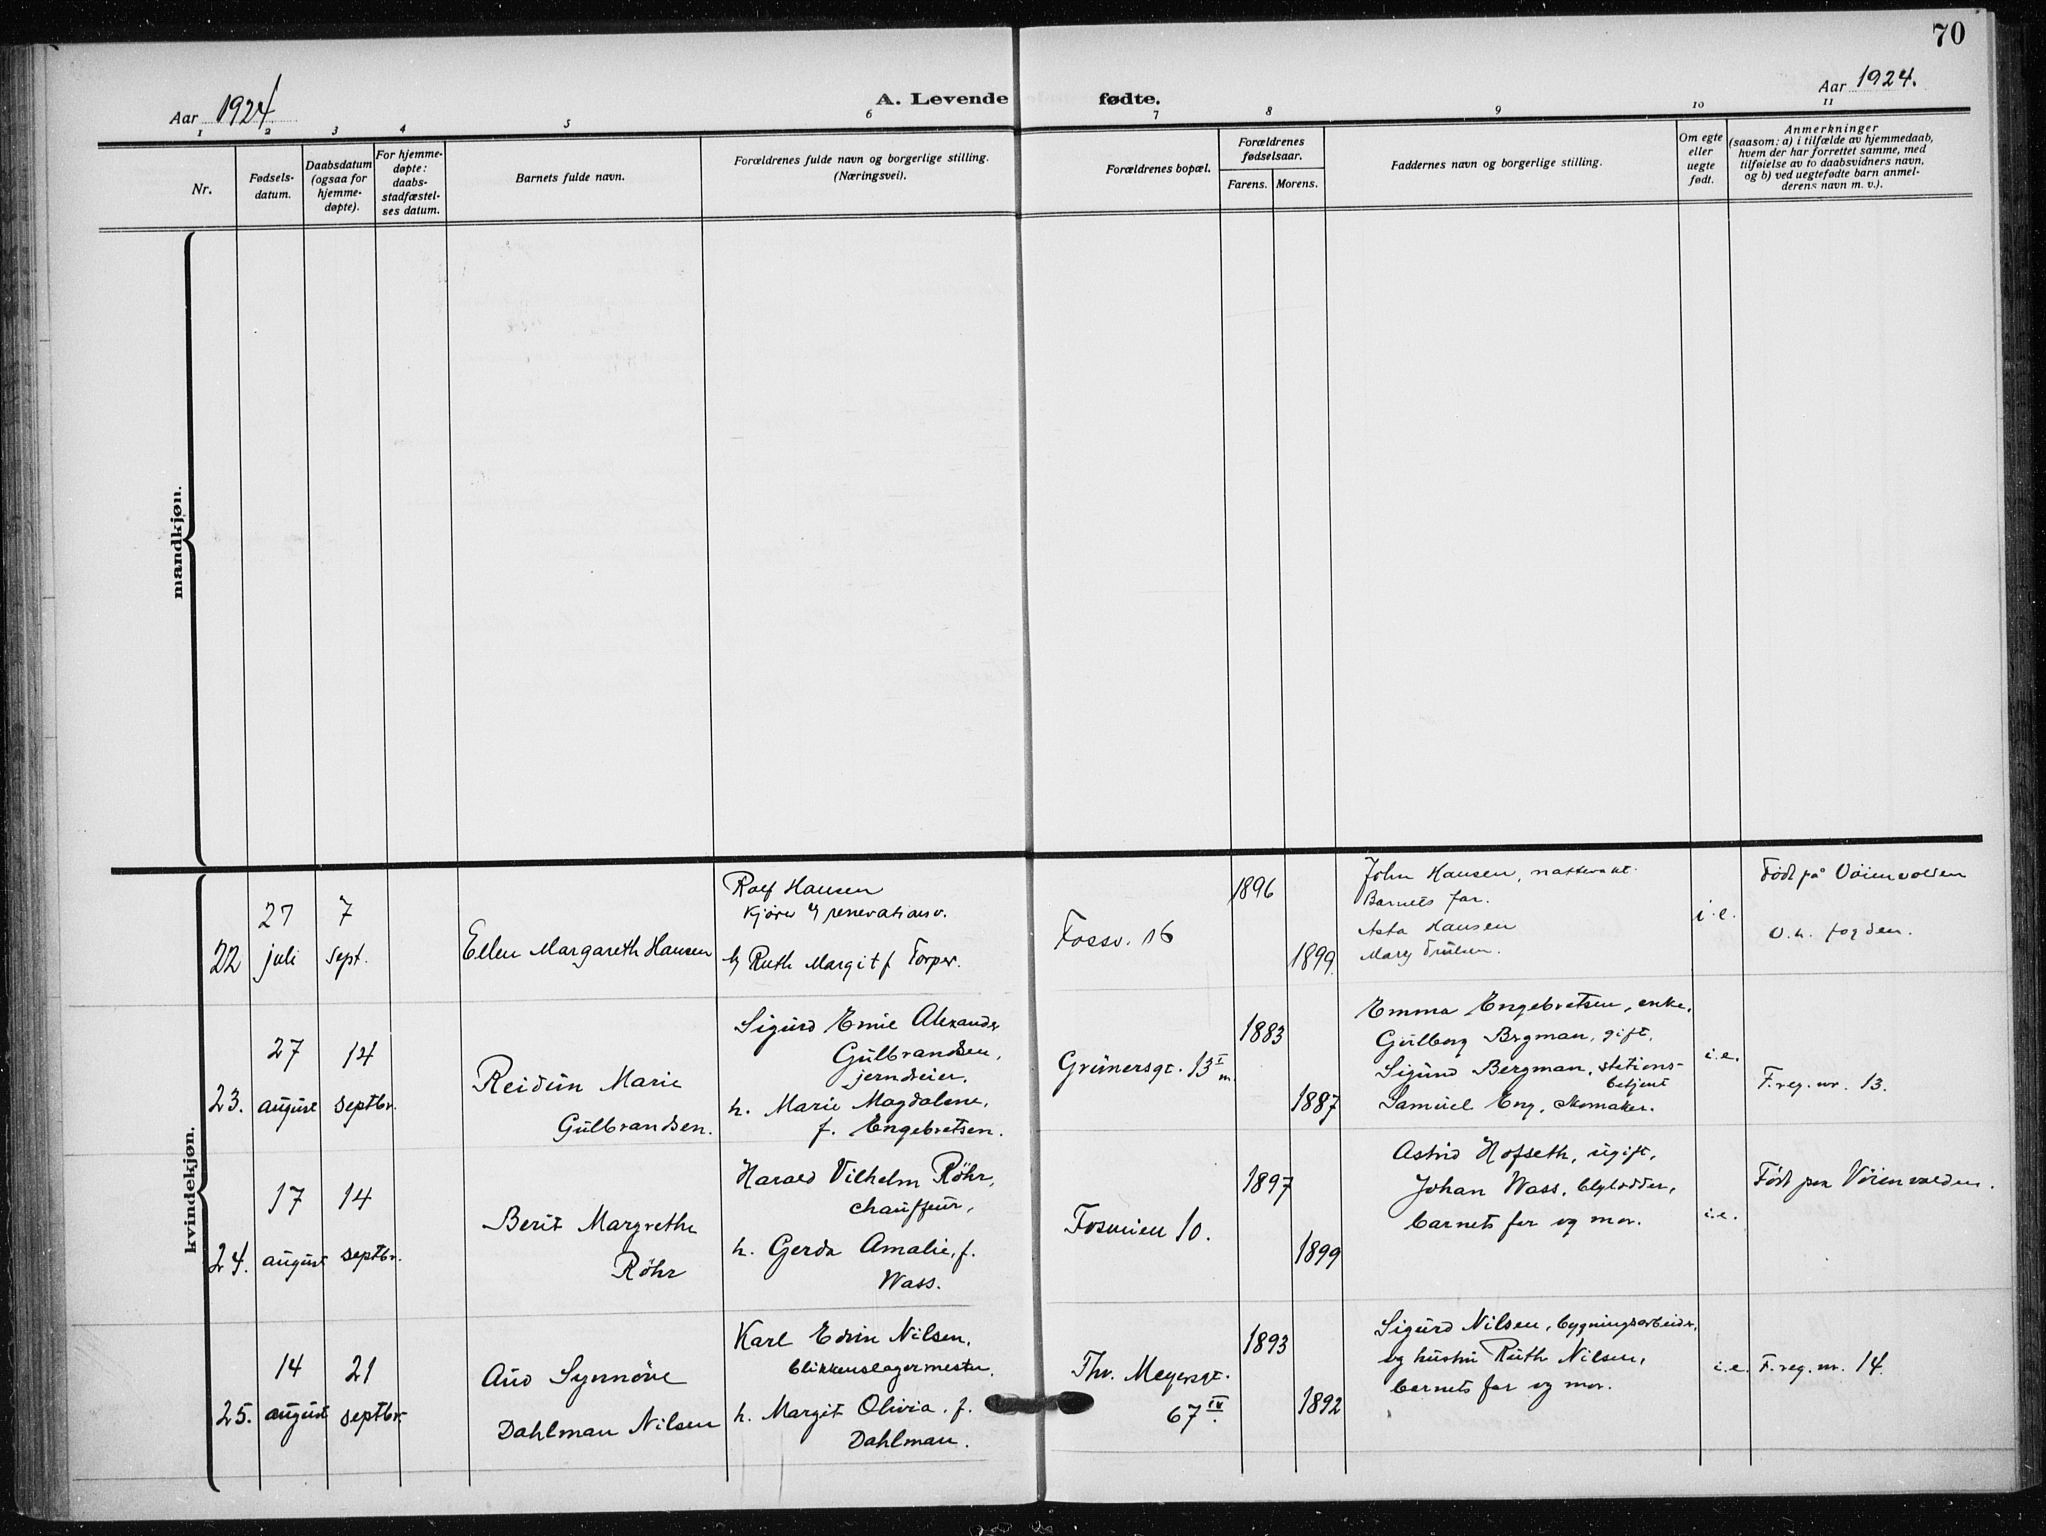 70
Aar 1924
A. Levende fødte.
Aar 1924.
1 2 3 4 5 6 7 8 9 10 11
Nr.
Fødsels-
datum.
Daabsdatum
(ogsaa for
hjemme-
døpte).
For hjemme-
døpte:
daabs-
stadfæstel-
ses datum.
Barnets fulde navn.
Forældrenes fulde navn og borgerlige stilling.
(Næringsvei).
Forældrenes bopæl.
Forældrenes
fødselsaar.
Farens. Morens.
Faddernes navn og borgerlige stilling.
Om egte
eller
uegte
født.
Anmerkninger
(saasom: a) i tilfælde av hjemmedaab,
hvem der har forrettet samme, med
tilføielse av to daabsvidners navn,
og b) ved uegtefødte barn anmel-
derens navn m. v.).
mandkjøn.
kvindekjøn.
22
27
juli
7
sept.
Ellen Margareth Hansen
Rolf Hansen
kjører
Ruth Margit f Torper.
Fossv. 16
1896
1899
John Hansen, nattevakt.
Barnets far.
Asta Hansen
Mary
i.e.
Født på Vøienvolden
23.
27
august
14
septbr.
Reidun Marie
Gulbrandsen.
Sigurd Emil Alexander
Gulbrandsen,
jerndreier.
h. Marie Magdalene,
f. Engebretsen.
Grünersgt. 13 I
1883
1887
Emma Engebretsen, enke.
Gulborg Bergman, gift,
Sigurd Bergman, stations-
betjent
Samuel Eng, skomaker.
i.e.
F. reg. nr. 13.
24.
17
august
14
septbr.
Berit Margrethe
Röhr
Harald Vilhelm Röhr,
chauffeur,
h. Gerda Amalie, f.
Wass.
Fosveien 10.
1897
1899
Astrid Hofseth, ugift,
Johan Wass,
barnets far og mor.
i.e.
Født paa Vøienvolden.
25.
14
august
21
septbr.
Aud Synnöve
Dahlman Nilsen
Karl Edvin Nilsen,
blikkenslagermester.
h. Margit Olivia. f.
Dahlman.
Thv. Meyersgt.
67 IV.
1893
1892
Sigurd Nilsen, bygningsarbeider,
og hustru Ruth Nilsen,
barnets far og mor.
i.e.
F. reg. nr. 14.